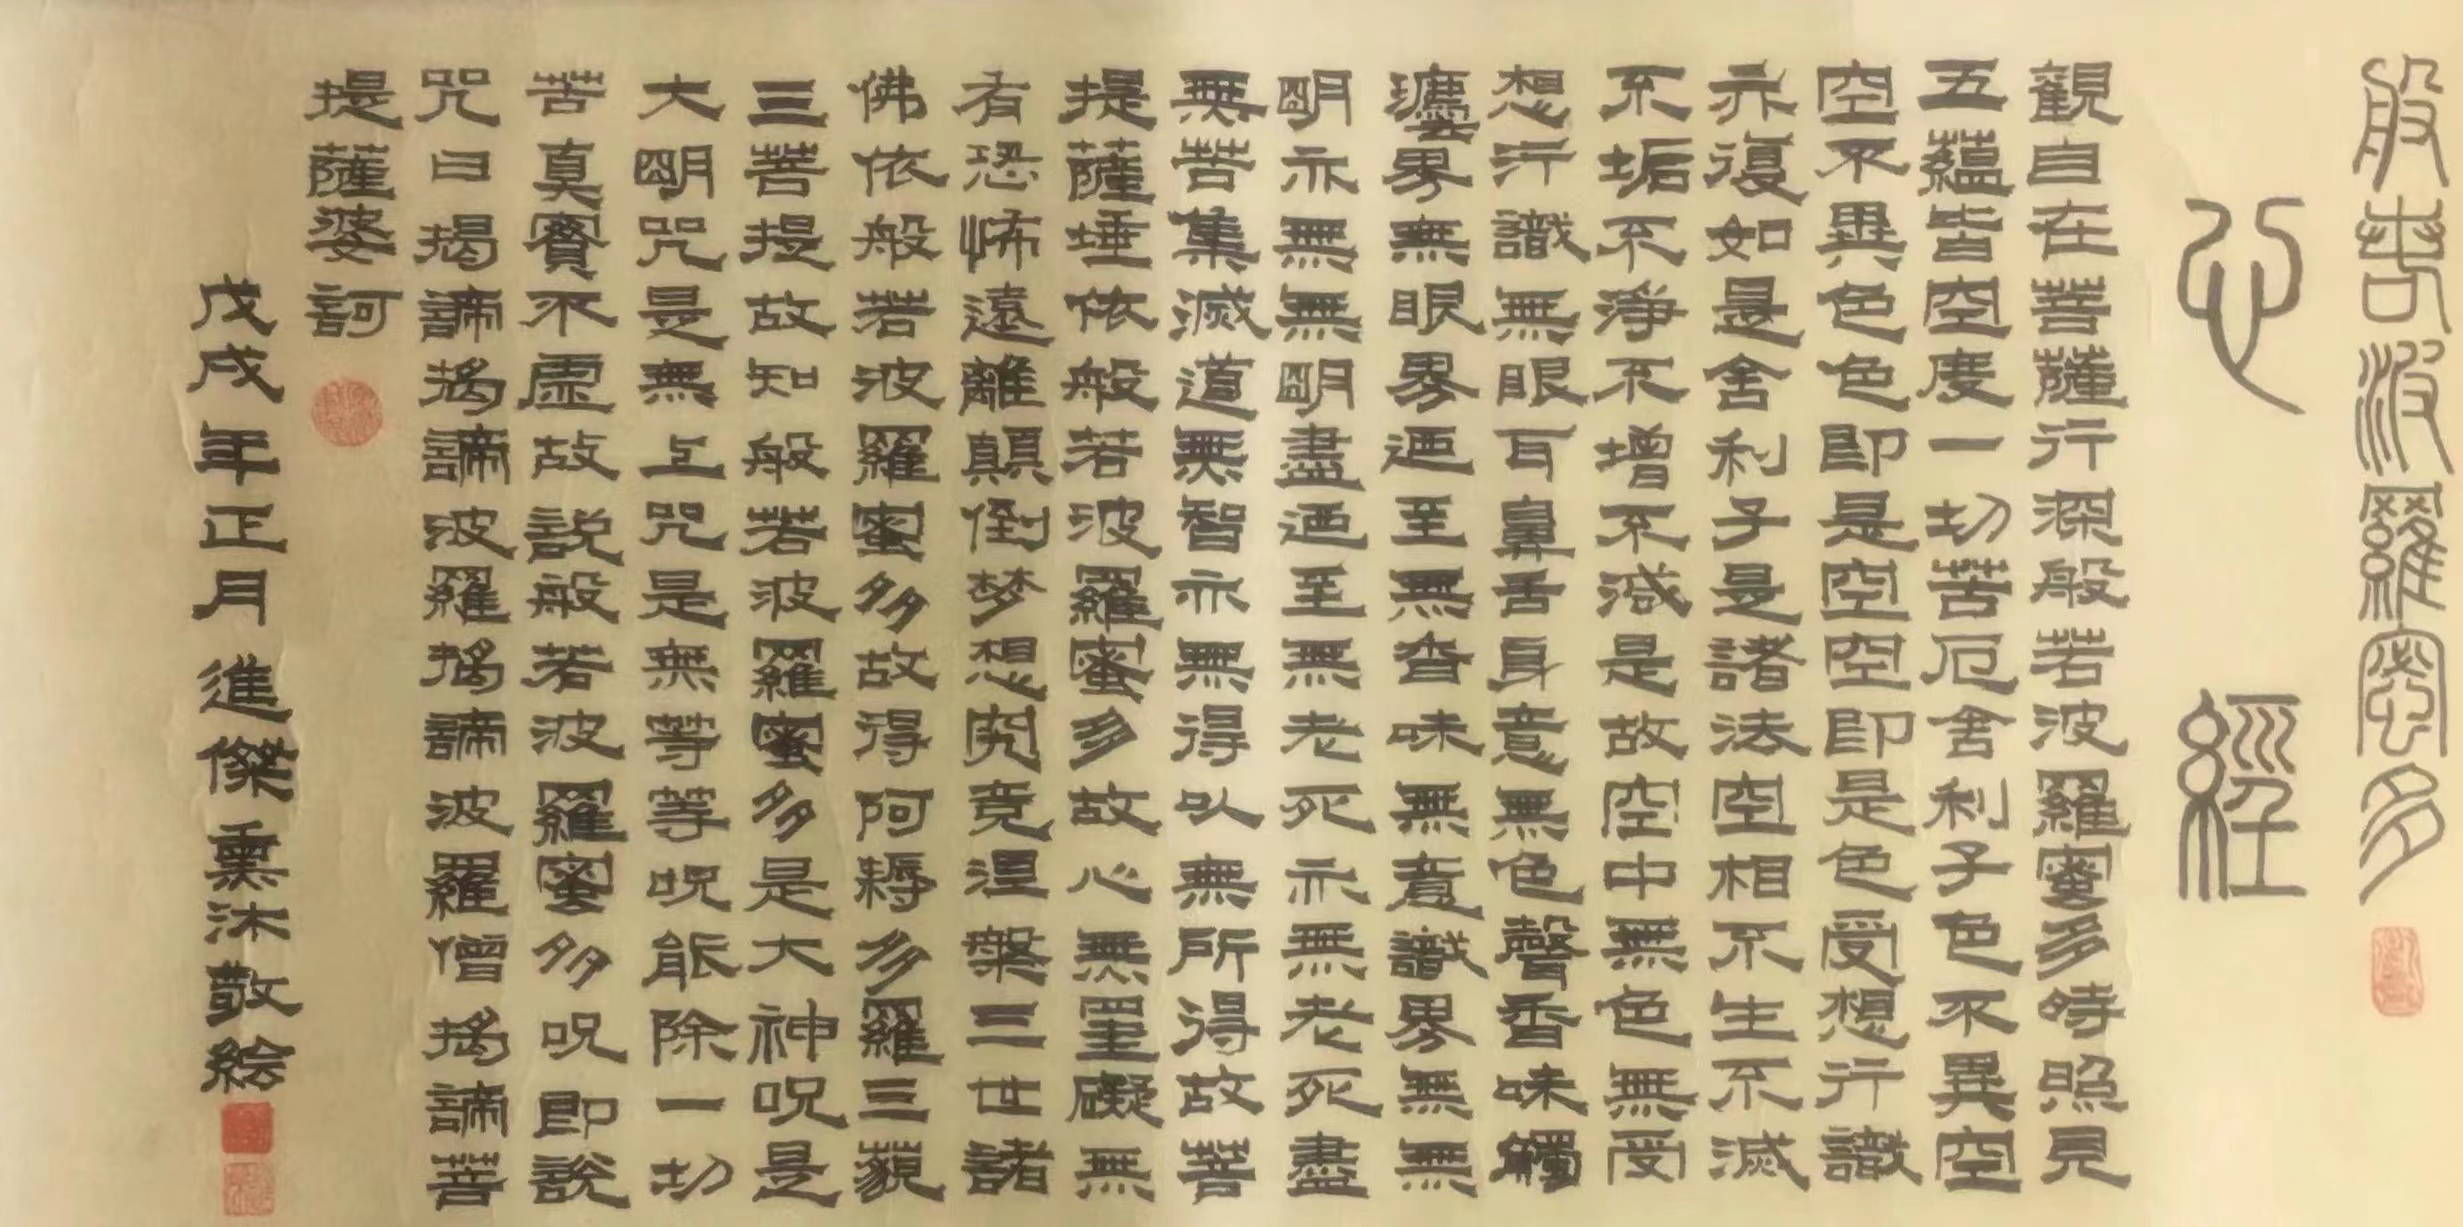 般若波羅蜜多
心經
觀自在菩薩行深般若波羅蜜多時照見
五蘊皆空度一切苦厄舍利子色不異空
空不異色色即是空空即是色受想行識
亦復如是舍利子是諸法空相不生不滅
不垢不淨不增不減是故空中無色無受
想行識無眼耳鼻舌身意無色聲香味觸
界無眼界迺至無香味無意識界無無
明亦無無明盡迺至無老死亦無老死盡
無苦集滅道無智亦無得以無所得故菩
提薩埵依般若波羅蜜多故心無罣礙無
有恐怖遠離顛倒梦想究竟涅槃三世諸
佛依般若波羅蜜多故得阿耨多羅三藐
三菩提故知般若波羅蜜多是大神呪是
大明咒是無上咒是無等等呪能除一切
苦真實不虛故說般若波羅蜜多呪即說
咒曰揭諦揭諦波羅揭諦波羅僧揭諦菩
提薩婆訶
戊戌年正月進傑熏沐敬絵